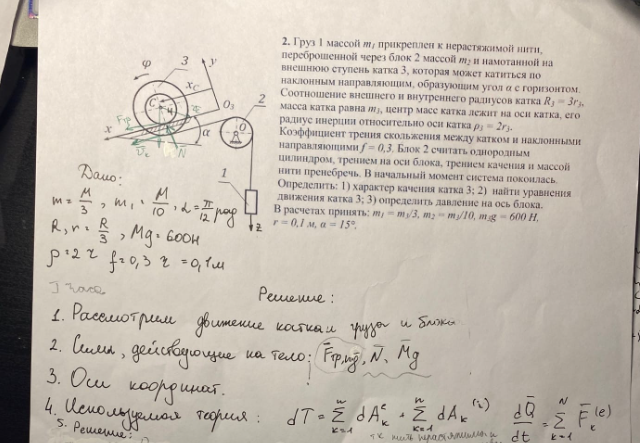 φ
3
y
x_C
O₃
2
C
x
α
O
N
1
z
2. Груз 1 массой m₁ прикреплен к нерастяжимой нити,
переброшенной через блок 2 массой m₂ и намотанной на
внешнюю ступень катка 3, которая может катиться по
наклонным направляющим, образующим угол α с горизонтом.
Соотношение внешнего и внутреннего радиусов катка R₃ = 3r₃,
масса катка равна m₃, центр масс катка лежит на оси катка, его
радиус инерции относительно оси катка ρ₃ = 2r₃.
Коэффициент трения скольжения между катком и наклонными
направляющими f = 0,3. Блок 2 считать однородным
цилиндром, трением на оси блока, трением качения и массой
нити пренебречь. В начальный момент система покоилась.
Определить: 1) характер качения катка 3; 2) найти уравнения
движения катка 3; 3) определить давление на ось блока.
В расчетах принять: m₁ = m₃/3, m₂ = m₃/10, m₃g = 600 Н.
r = 0,1 м, α = 15°.
Дано:
m = M/3, m₁ = M/10, α = π/12 рад
R, r = R/3, Mg = 600Н
ρ = 2r f = 0,3 r = 0,1м
Решение:
1. Рассмотрим движение катка и груза и блока
2. Силы, действующие на тело: F̄тр, N̄, M̄g
3. Оси координат.
4. Используемая теория: dT = Σₖ₌₁ⁿ dAₖᵉ + Σₖ₌₁ⁿ dAₖ⁽ⁱ⁾ dQ̄/dt = Σₖ₌₁ᴺ F̄ₖ⁽ᵉ⁾
5. Решение: